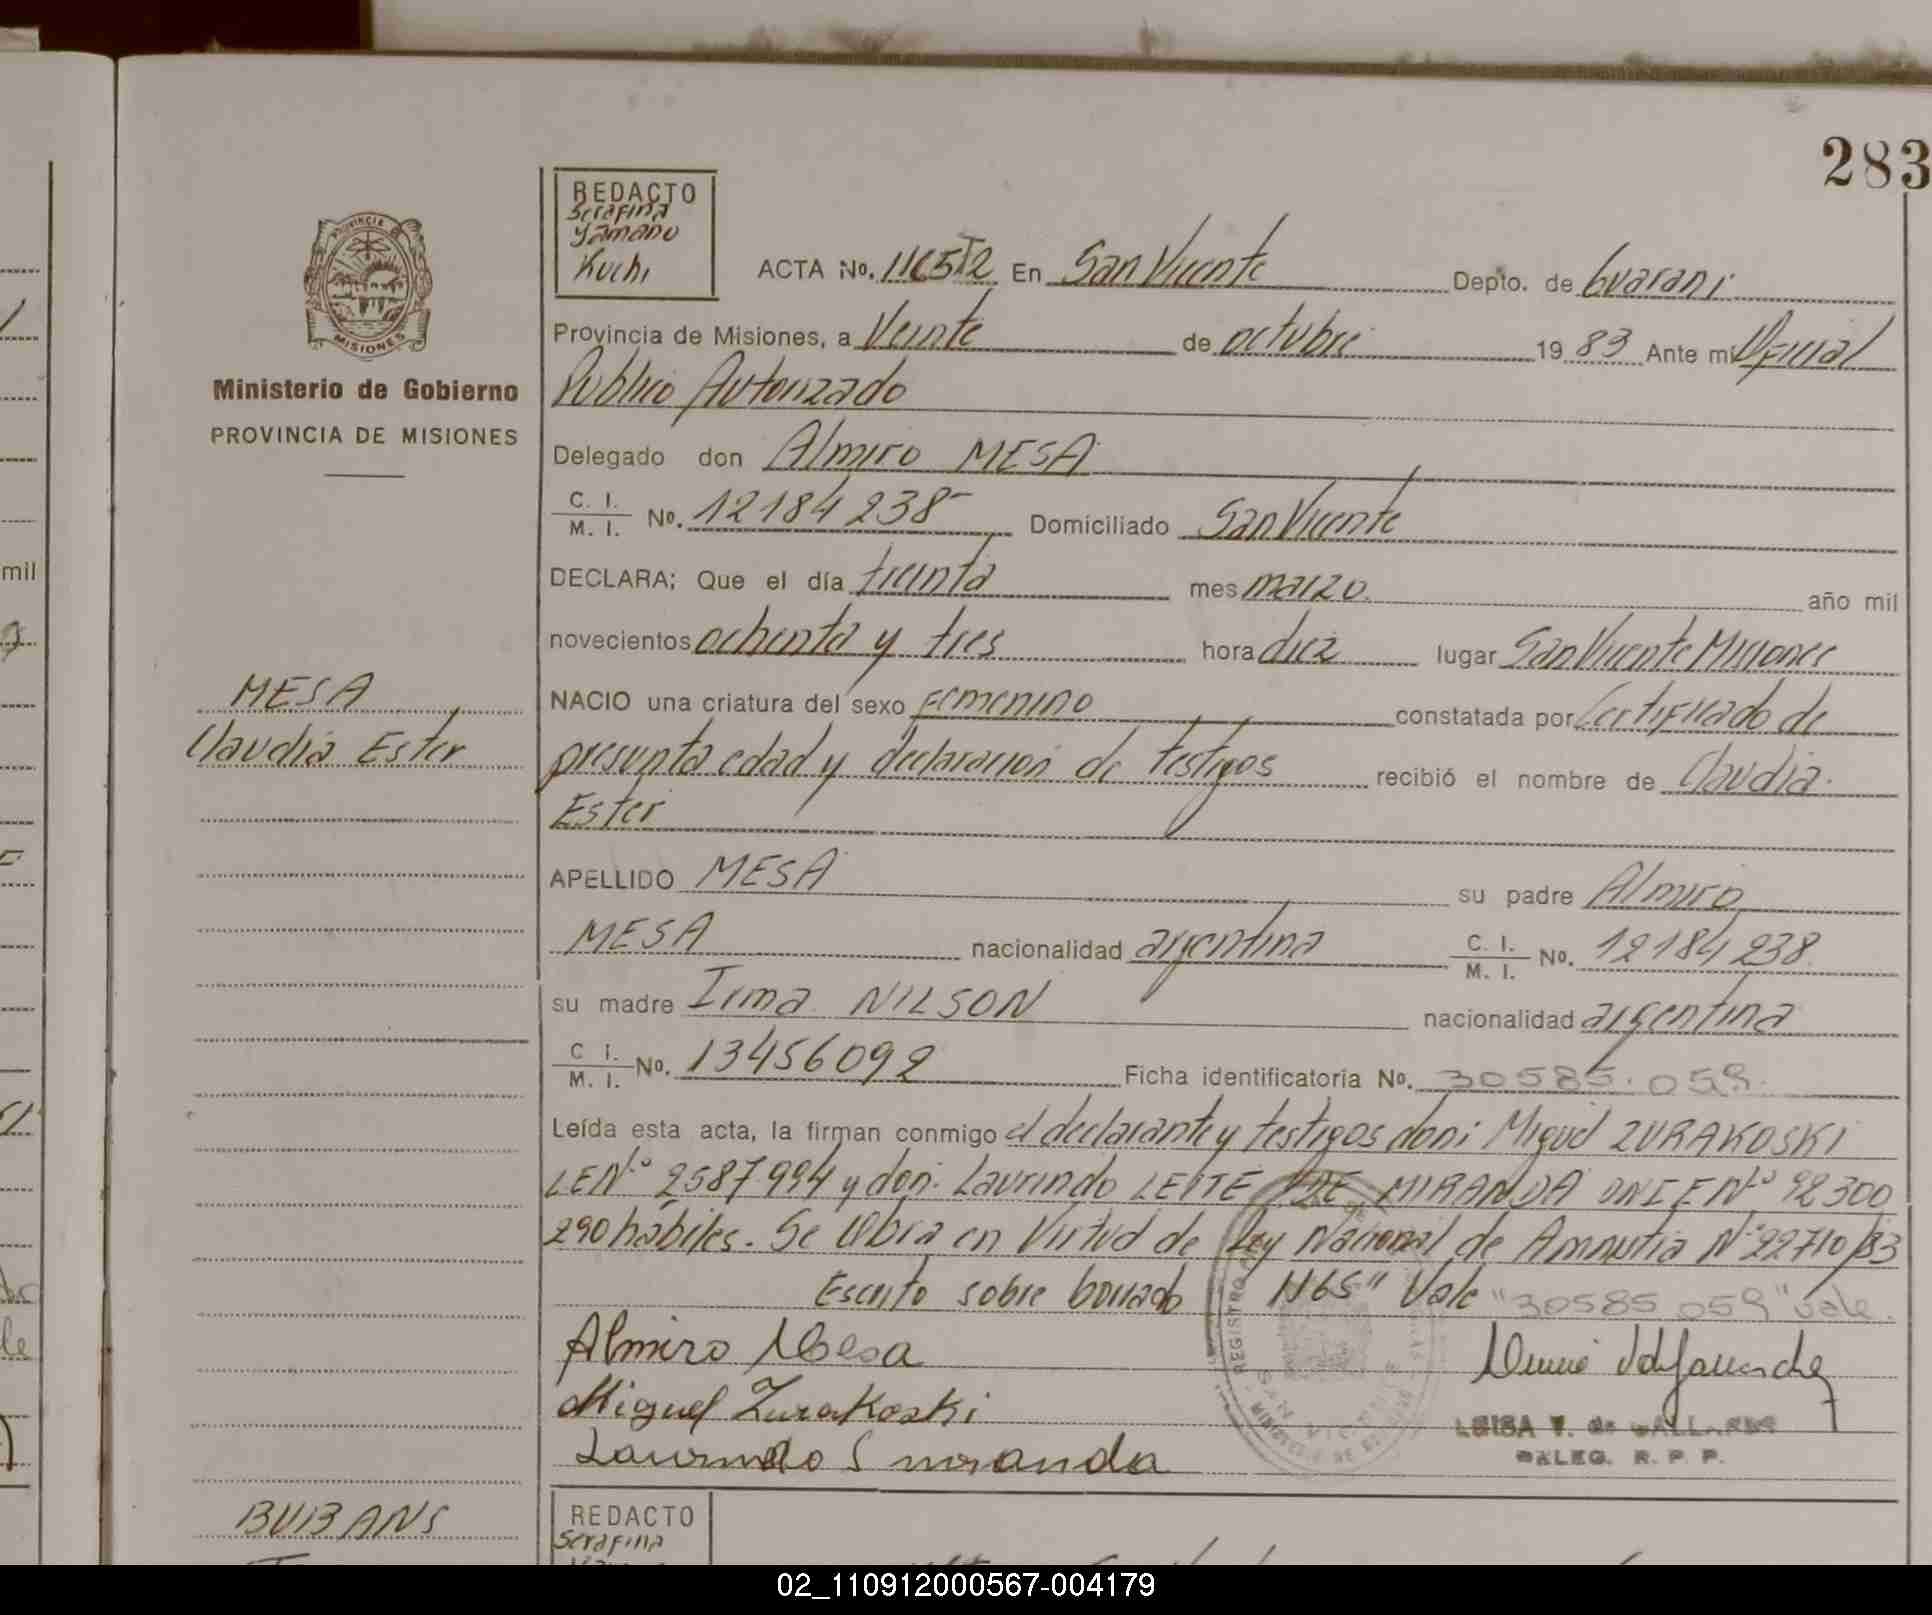 283
REDACTO
Serafina
Yamano
Kuchi
PROVINCIA
MISIONES
Ministerio de Gobierno
PROVINCIA DE MISIONES
ACTA No. 1165 T2 En San Vicente Depto. de Guarani
Provincia de Misiones, a Veinte de octubre 19 83 Ante mi Oficial
Publico Autorizado
Delegado don Almiro MESA
C. I. M. I. No. 12184 238- Domiciliado San Vicente
DECLARA; Que el día treinta mes marzo año mil
novecientos ochenta y tres hora diez lugar San Vicente Misiones
MESA
Claudia Ester
NACIO una criatura del sexo Femenino constatada por Certificado de
presunta edad y declaracion de testigos recibió el nombre de Claudia
Ester
APELLIDO MESA su padre Almiro
MESA nacionalidad argentina C. I. M. I. No. 12184 238
su madre Irma NILSON nacionalidad argentina
C I. M. I. No. 13456092 Ficha identificatoria No. 30585.059.
Leída esta acta, la firman conmigo el declarante y testigos don: Miguel ZURAKOSKI
LEN° 2587994 y don: Laurindo LEITE DE MIRANDA DNI E N° 92300
290 hábiles. Se labra en Virtud de Ley Nacional de Amnistia N° 22710/83
Escrito sobre borrado 1165" Vale "30585 059" vale.
Almiro Mesa
Miguel Zurakoski
Laurindo miranda
REGISTRO
SAN VICENTE
LUISA V. de GALLARDO
DALEG. R. P. P.
BUBANS
REDACTO
Serafina
mil
02_110912000567-004179